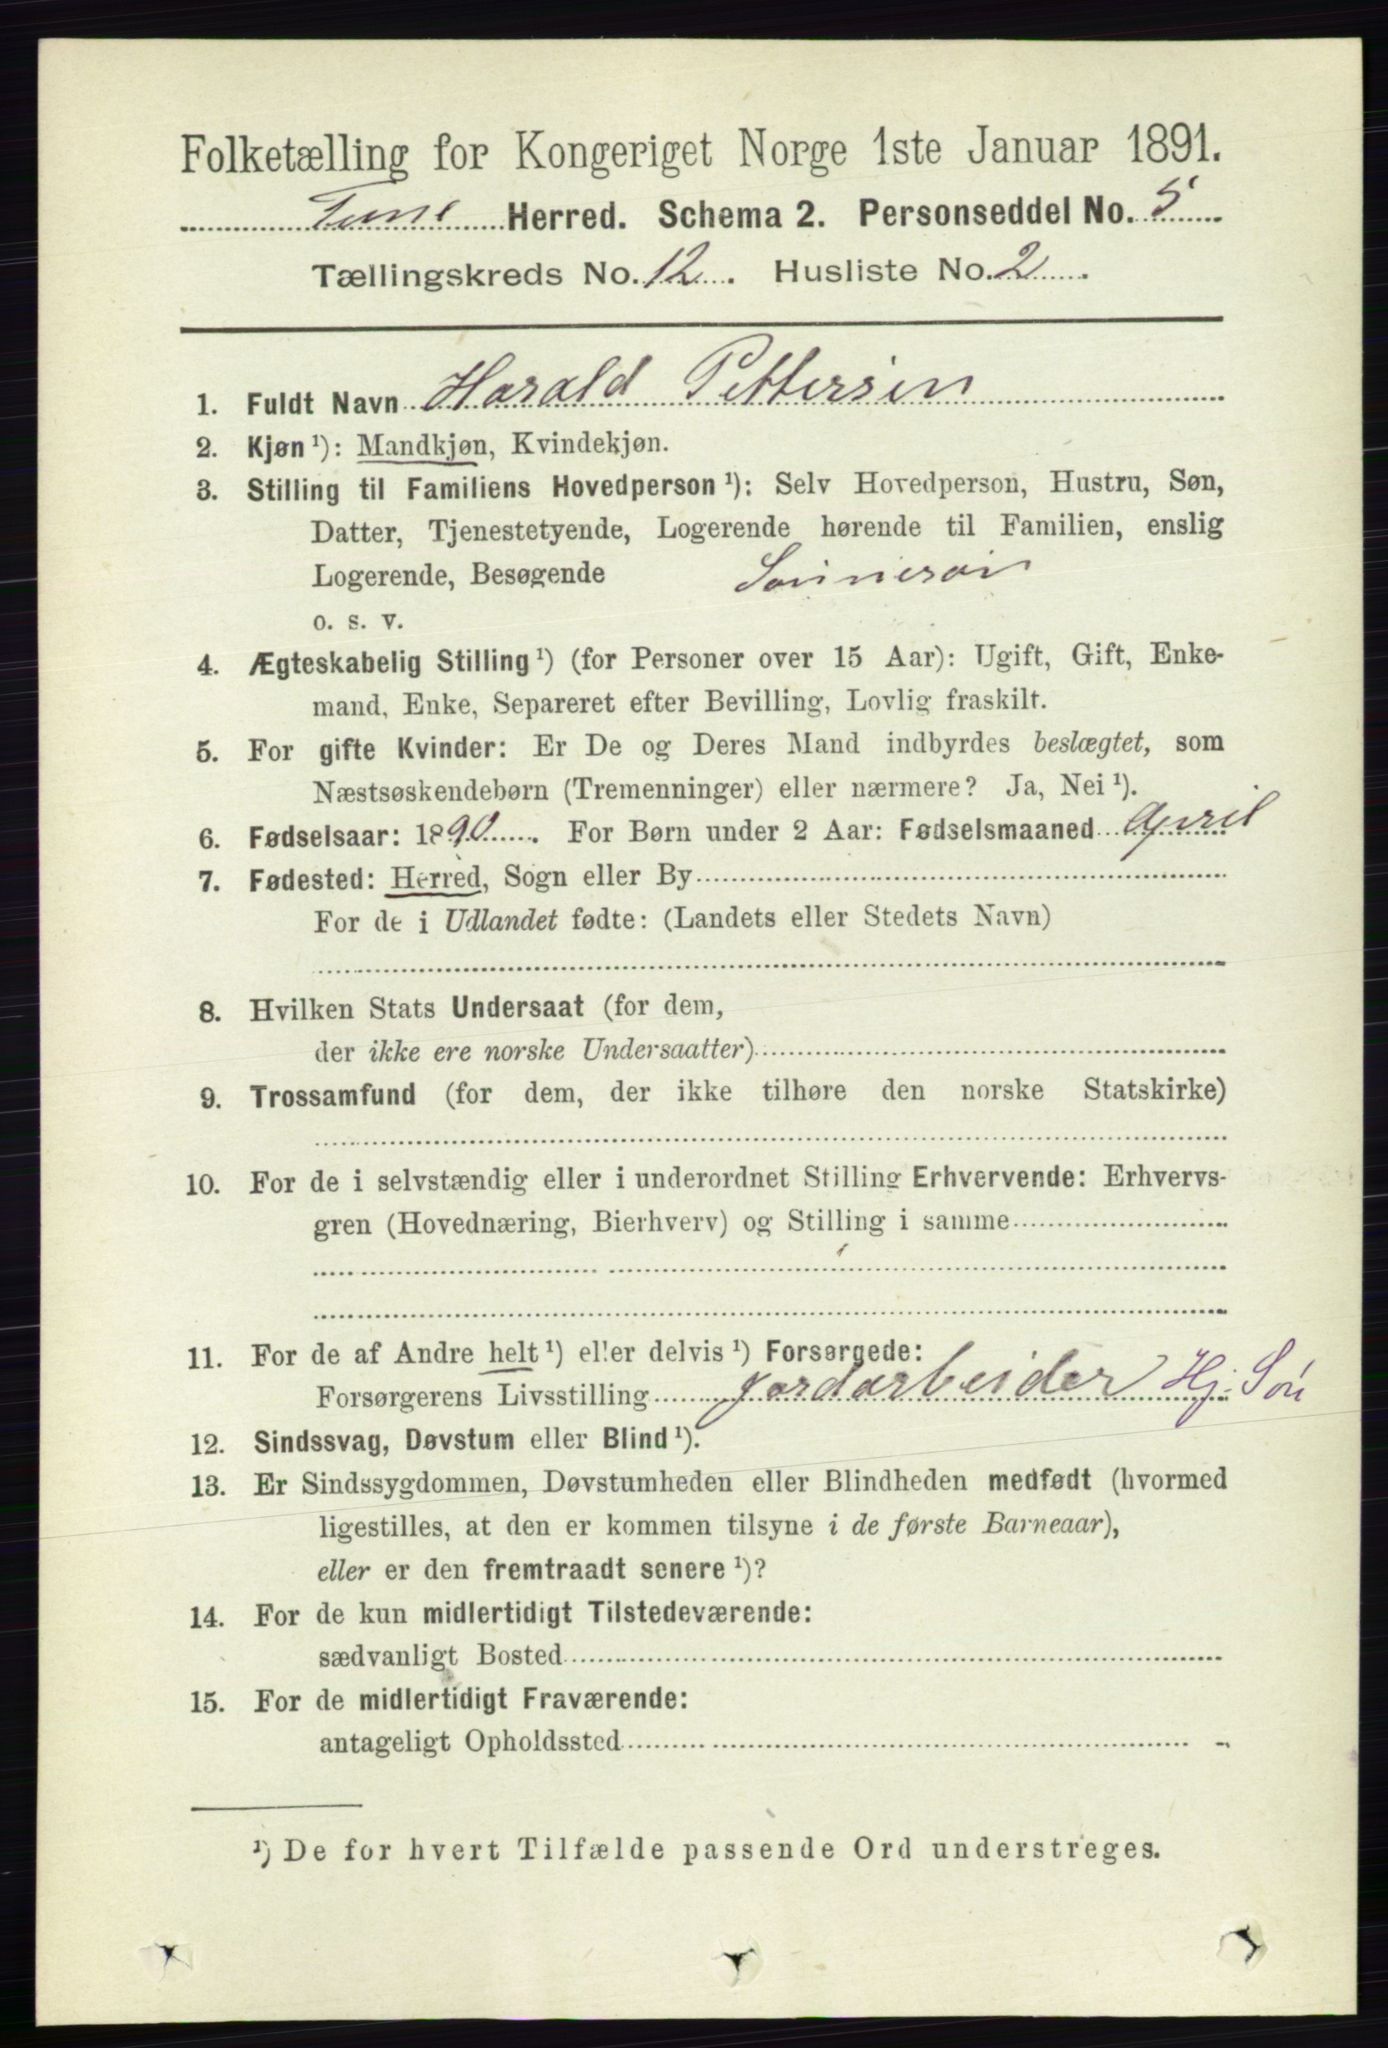 Folketælling for Kongeriget Norge 1ste Januar 1891.
Tune Herred. Schema 2. Personseddel No. 5
Tællingskreds No. 12. Husliste No. 2
1. Fuldt Navn Harald Pettersen
2. Kjøn¹): Mandkjøn, Kvindekjøn.
3. Stilling til Familiens Hovedperson¹): Selv Hovedperson, Hustru, Søn,
Datter, Tjenestetyende, Logerende hørende til Familien, enslig
Logerende, Besøgende Sønnesøn
o. s. v.
4. Ægteskabelig Stilling¹) (for Personer over 15 Aar): Ugift, Gift, Enke-
mand, Enke, Separeret efter Bevilling, Lovlig fraskilt.
5. For gifte Kvinder: Er De og Deres Mand indbyrdes beslægtet, som
Næstsøskendebørn (Tremenninger) eller nærmere? Ja, Nei¹).
6. Fødselsaar: 1890. For Børn under 2 Aar: Fødselsmaaned April
7. Fødested: Herred, Sogn eller By
For de i Udlandet fødte: (Landets eller Stedets Navn)
8. Hvilken Stats Undersaat (for dem,
der ikke ere norske Undersaatter)
9. Trossamfund (for dem, der ikke tilhøre den norske Statskirke)
10. For de i selvstændig eller i underordnet Stilling Erhvervende: Erhvervs-
gren (Hovednæring, Bierhverv) og Stilling i samme
11. For de af Andre helt¹) eller delvis¹) Forsørgede:
Forsørgerens Livsstilling Jordarbeider Hj. Søn
12. Sindssvag, Døvstum eller Blind¹).
13. Er Sindssygdommen, Døvstumheden eller Blindheden medfødt (hvormed
ligestilles, at den er kommen tilsyne i de første Barneaar),
eller er den fremtraadt senere¹)?
14. For de kun midlertidigt Tilstedeværende:
sædvanligt Bosted
15. For de midlertidigt Fraværende:
antageligt Opholdssted
¹) De for hvert Tilfælde passende Ord understreges.